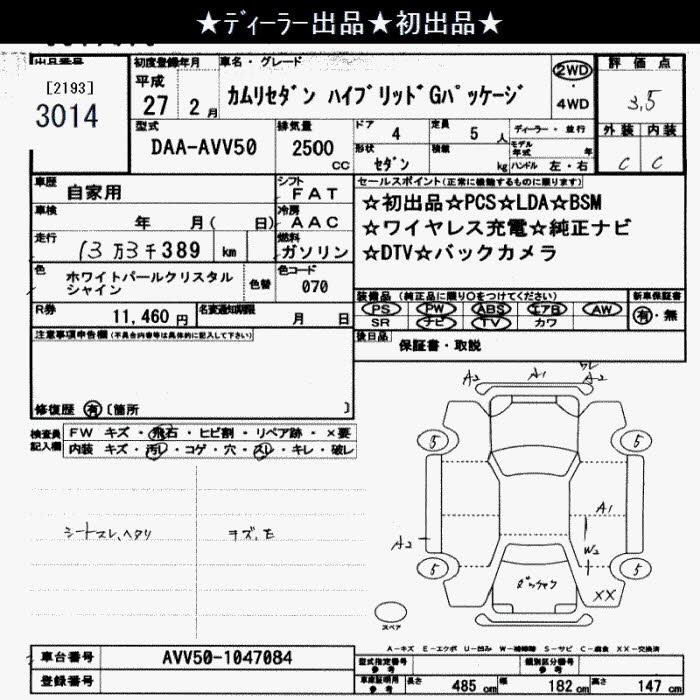 ★ディーラー出品★初出品★
出品番号
[2193]
3014
初度登録年月
平成
27 2 月
車名・グレード
カムリセダン ハイブリッドGパッケージ
2WD
・
4WD
評価点
3.5
外装 内装
C C
型式
DAA-AVV50
排気量
2500 CC
ドア 4
定員 5 人
形状 セダン
積載 kg
ディーラー・並行
モデル年式 年
ハンドル 左・右
車歴 自家用
シフト FAT
車検 年 月( 日)
冷房 AAC
走行 13万3千389 km
燃料 ガソリン
色 ホワイトパールクリスタルシャイン
色替
色コード 070
R券 11,460 円
名変通知期限 月 日
セールスポイント(正常に機能するものに限ります)
☆初出品☆PCS☆LDA☆BSM
☆ワイヤレス充電☆純正ナビ
☆DTV☆バックカメラ
装備品 (純正品に限り○をつけてください)
PS PW ABS エアB AW
SR ナビ TV カワ
新車保証書
有・無
後日品 保証書・取説
注意事項申告欄(不具合内容等は具体的に記入して下さい)
修復歴 有 〔箇所 〕
検査員記入欄
FW キズ・飛石・ヒビ割・リペア跡・×要
内装 キズ・汚レ・コゲ・穴・スレ・キレ・破レ
シートスレ、ヘタリ
キズ、E
A2 A1 A2
5 5
A1
A2
W2
5 5
XX
スペア
A-キズ E-エクボ U-凹み W-補修跡 S-サビ C-腐食 XX-交換済
車台番号 AVV50-1047084
登録番号
型式指定番号 参考
類別区分番号 参考
車庫証明用 参考
長さ 485 cm 幅 182 cm 高さ 147 cm